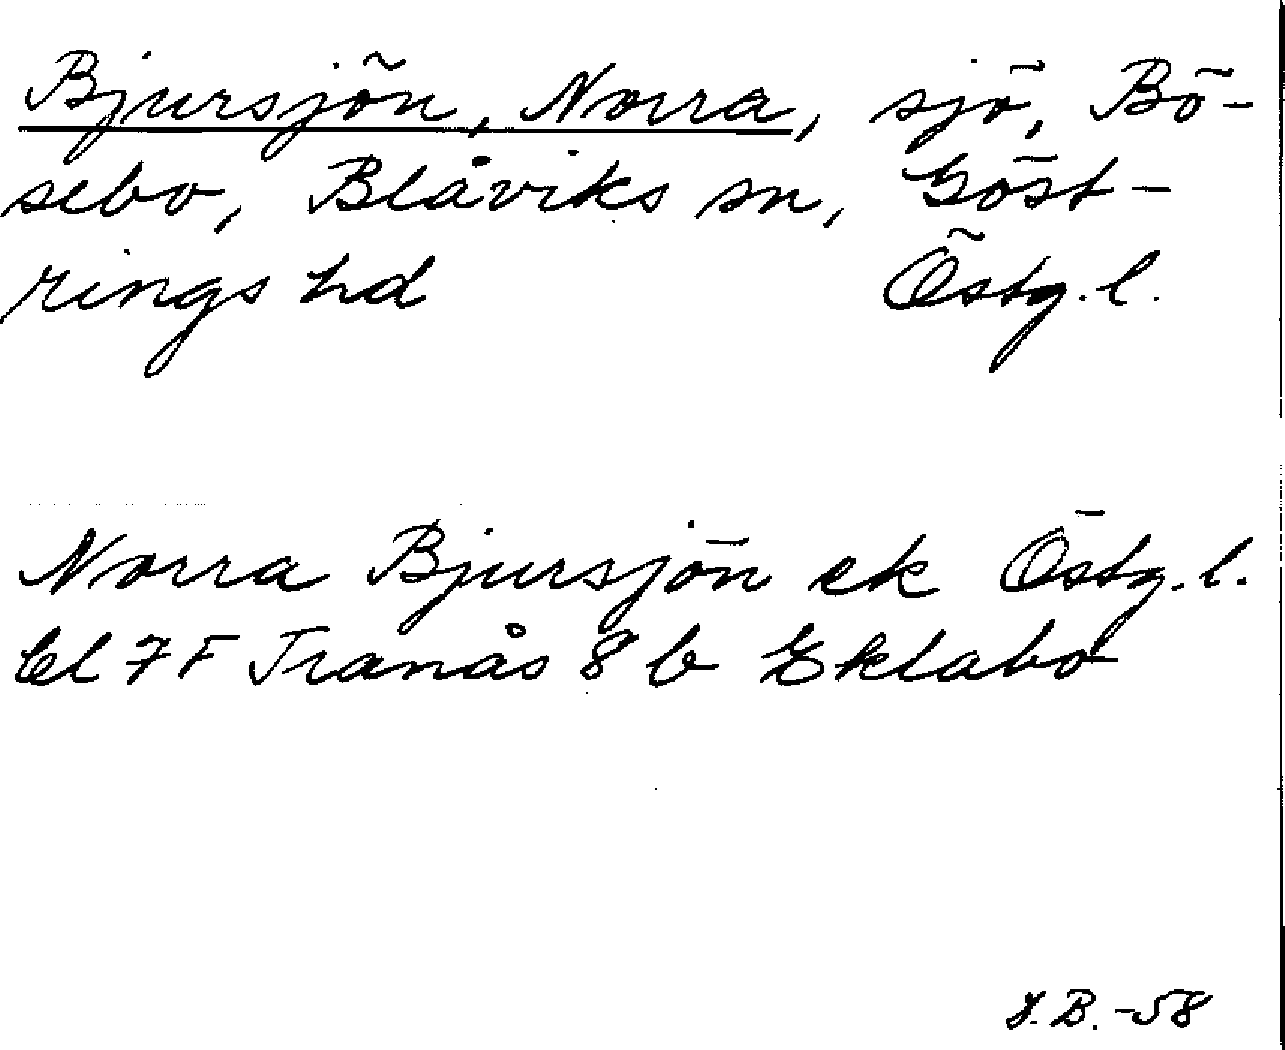 Bjursjön, Norra, sjö, Bö-
sebo, Blåviks sn, Göst-
rings hd Östg. l.
Norra Bjursjön ek Östg. l.
bl 7F Tranås 8 b Eklabo
J.B. -58